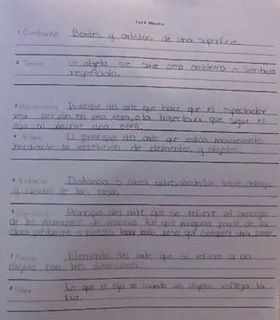 1 Contorno Bordes y orillas de una superficie
2 Tema Un objeto que sirve como emblema o
3 Movimiento Principio del arte que hace que el espectador
vea acción en una obra, o la trayectoria que sigue el
ojo al una obra
4 Ritmo El principio del arte que indica movimiento
mediante la repetición de elementos y objetos
5 Espacio Distancia o área entre, alrededor, sobre, debajo
y dentro de las cosas
6 Principio del arte que se refiere al arreglo
de los elementos de manera tal que ninguna parte de la
obra o parezca tener más peso que cualquier otra parte
7 Forma Elemento del arte que se refiere a un
objeto con tres dimensiones
8 Color Lo que el ojo ve cuando un objeto refleja la
luz